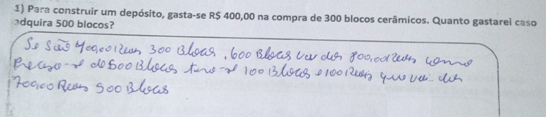 1) Para construir um depósito, gasta-se R$ 400,00 na compra de 300 blocos cerâmicos. Quanto gastarei caso
adquira 500 blocos?
Se São 400,00 Reais 300 Blocos, 600 Blocos vai dar 800,00 Reais como
Precisa-se de 500 Blocos tira-se 100 Blocos e 100 Reais que vai dar
700,00 Reais 500 Blocos